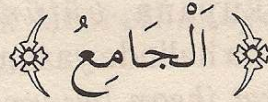 اَلْجَامِعُ